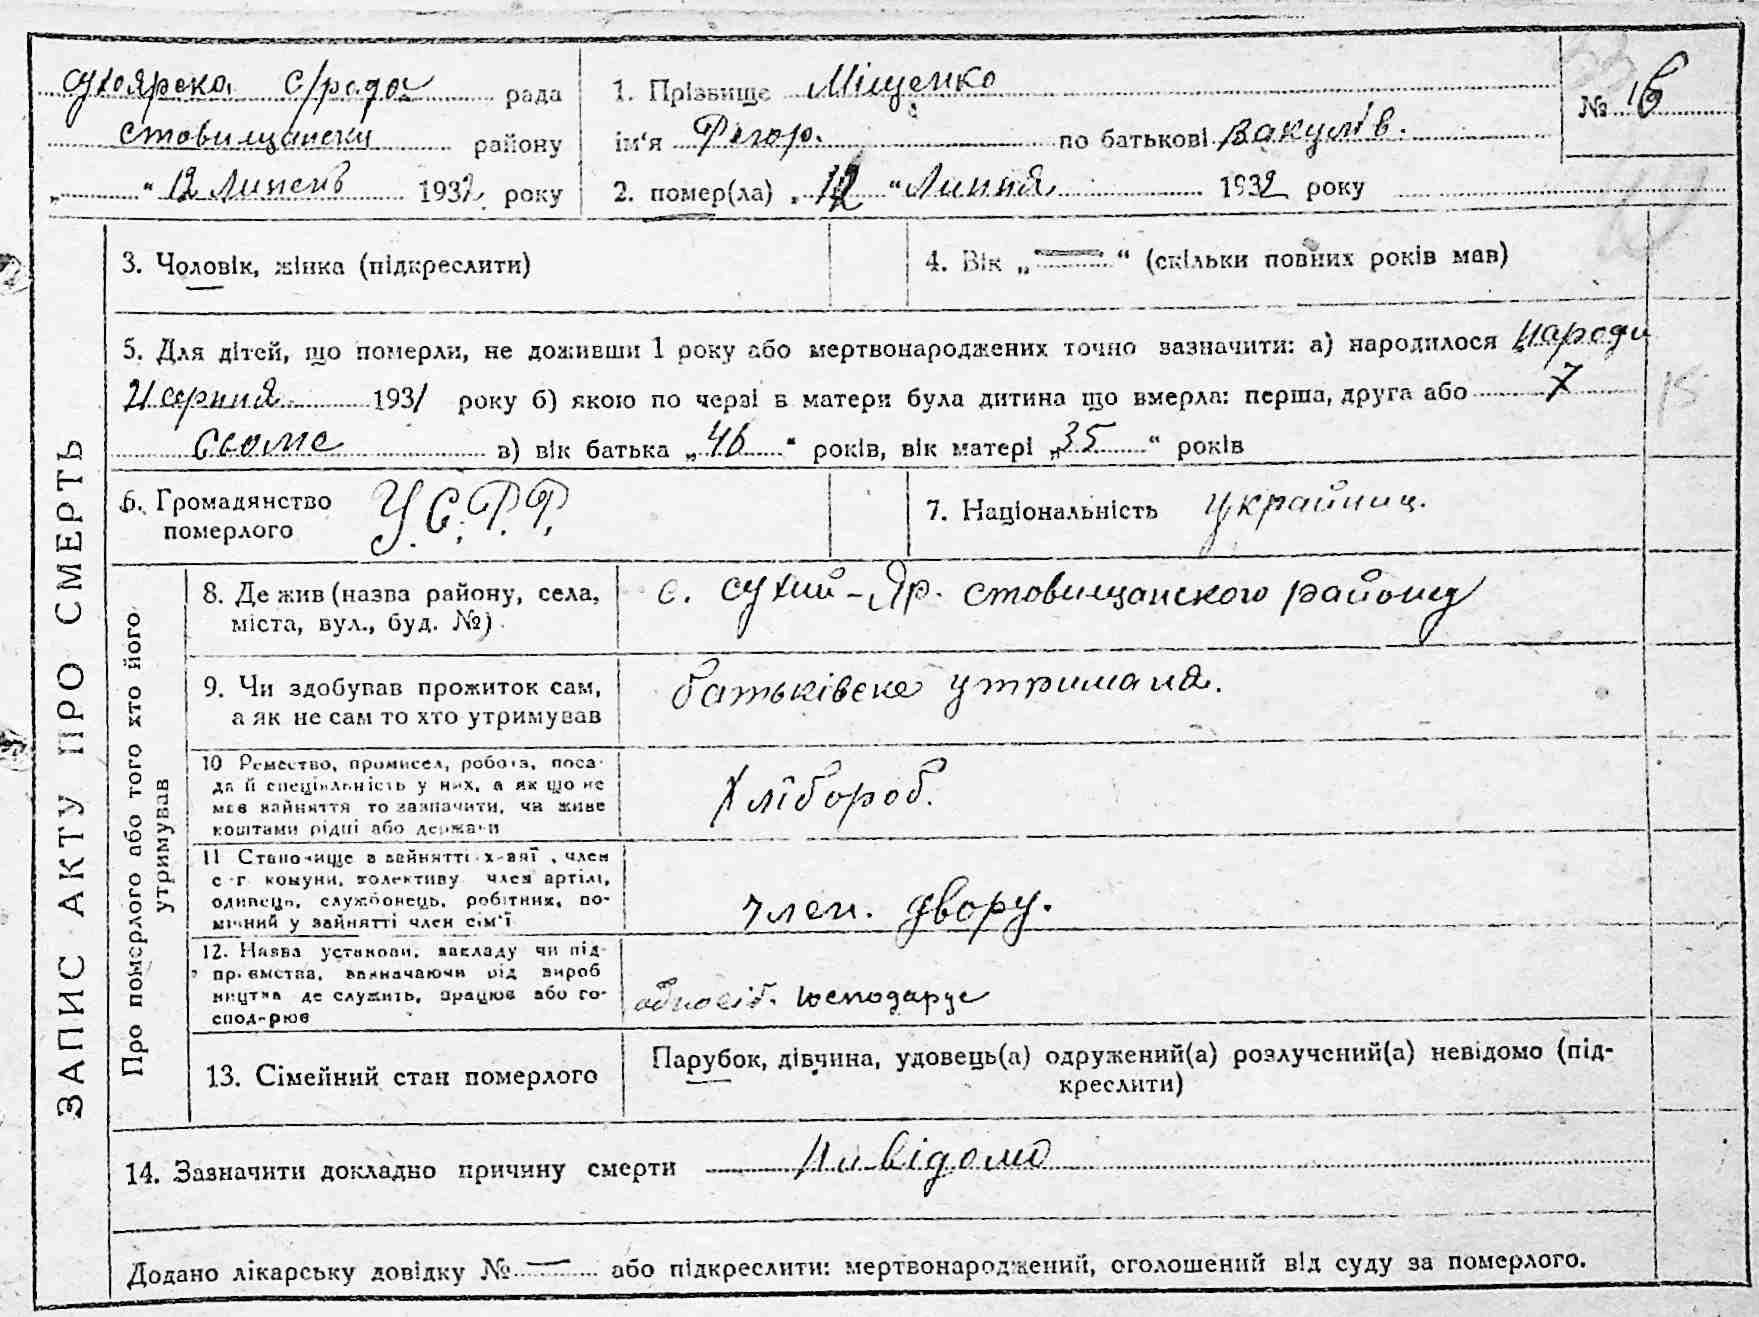 сухоярска с/рада рада
стовищански району
„ “ 12 Липень 1932 року
1. Прізвище Міщенко
ім'я Фегор. по батькові Вакулів.
2. помер(ла) „ 12 “ Липня 1932 року
№ 16
3. Чоловік, жінка (підкреслити)
4. Вік „ — “ (скільки повних років мав)
5. Для дітей, що померли, не доживши 1 року або мертвонароджених точно зазначити: а) народилося народи
21 серпня 1931 року б) якою по черзі в матери була дитина що вмерла: перша, друга або 7
Сьоме в) вік батька „ 46 “ років, вік матері „ 35 “ років
15
6. Громадянство
померлого
У.С.Р.Р.
7. Національність Украйниц.
ЗАПИС АКТУ ПРО СМЕРТЬ
Про померлого або того хто його
утримував
8. Де жив (назва району, села,
міста, вул., буд. №)
с. сухий-Яр. стовищанского району
9. Чи здобував прожиток сам,
а як не сам то хто утримував
батьківске утриманя.
10 Ремество, промисел, робота, поса-
да й спеціяльність у них, а як що не
мав зайняття то зазначити, чи живе
коштами рідні або держави
Хлібороб.
11 Становище в зайнятті х-вяї, член
с-г комуни, колективу член артілі,
одинець, службонець, робітник, по-
мічний у зайнятті член сім'ї
член. двору.
12. Назва установи, закладу чи під-
приємства, визначаючи від вироб
ництва де служить, працює або го-
спод-рює
одноосіб. Господарує
13. Сімейний стан померлого
Парубок, дівчина, удовець(а) одружений(а) розлучений(а) невідомо (під-
креслити)
14. Зазначити докладно причину смерти Нивідомо
Додано лікарську довідку № — або підкреслити: мертвонароджений, оголошений від суду за померлого.